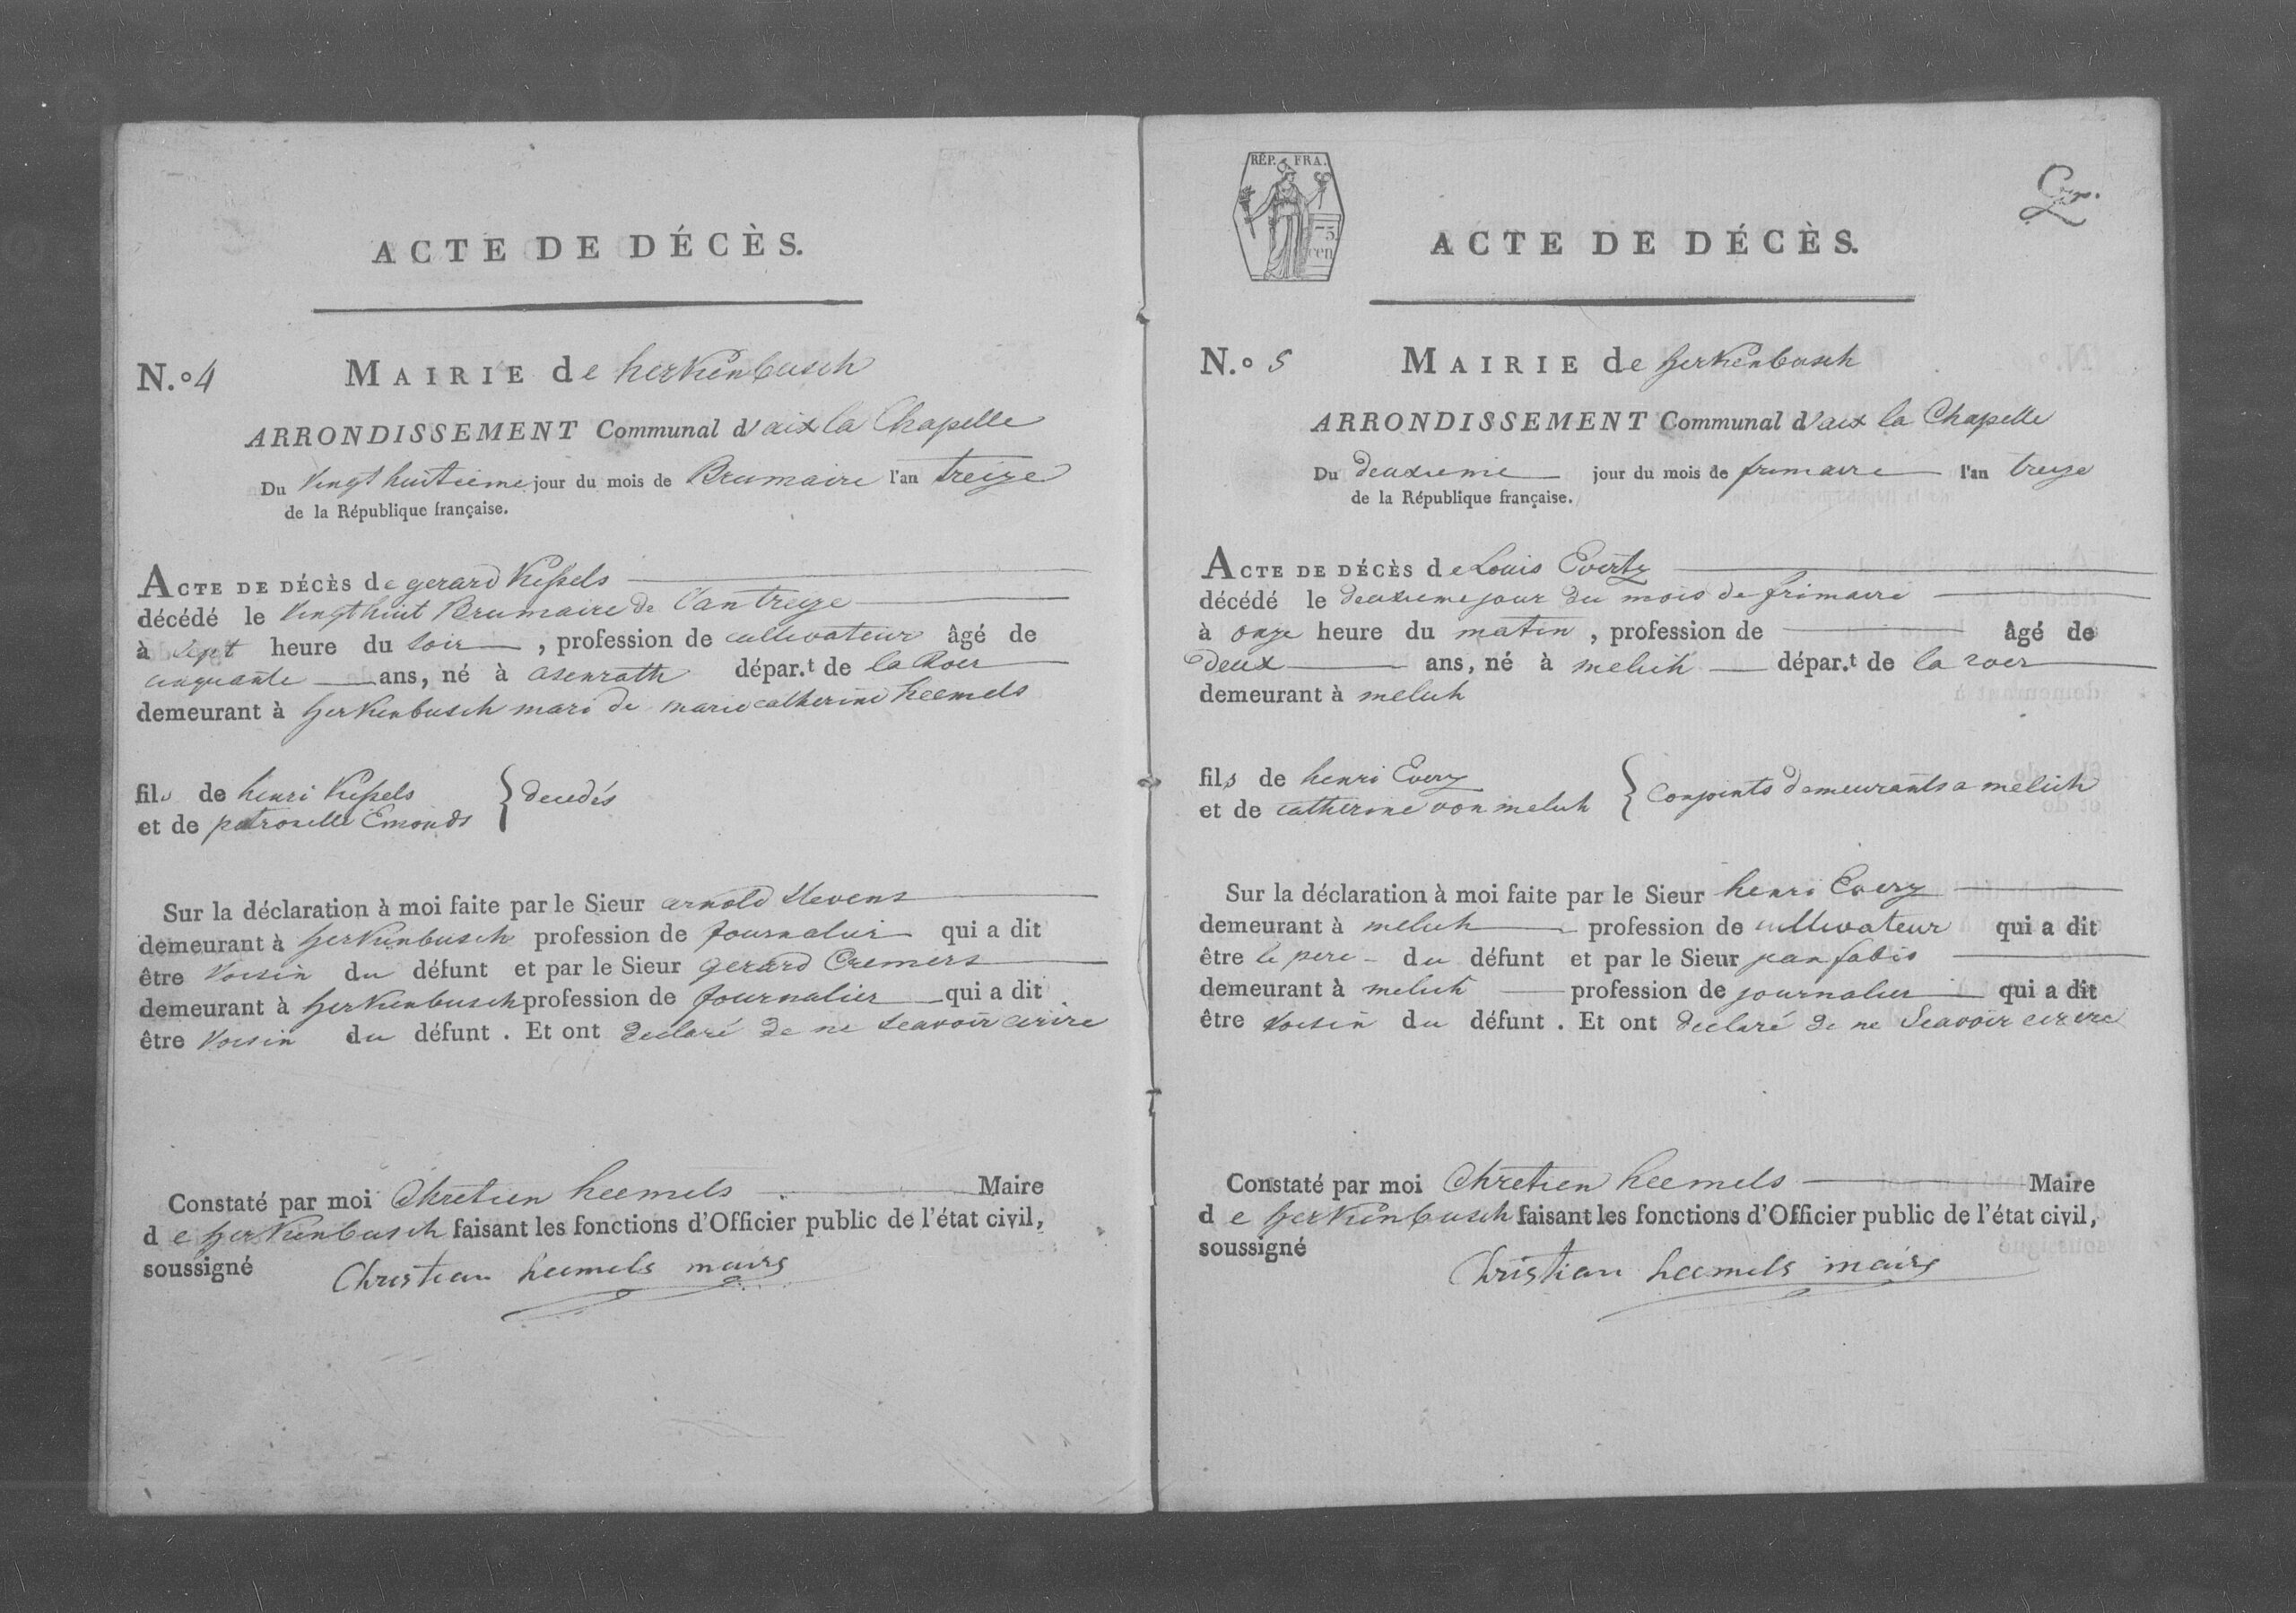 ACTE DE DÉCÈS.
N.o 4 MAIRIE de herkenbusch
ARRONDISSEMENT Communal d'aix la Chapelle
Du Vingt huitieme jour du mois de Brumaire l'an treize
de la République française.
ACTE DE DÉCÈS de gerard Kessels
décédé le Vingt huit Brumaire de l'an treize
à sept heure du soir , profession de cultivateur âgé de
cinquante ans, né à asenrath dépar.t de la Roer
demeurant à herkenbusch mari de marie catherine heemels
fils de henri Kessels
et de petronelle Emonds } decedés
Sur la déclaration à moi faite par le Sieur arnold Stevens
demeurant à herkenbusch profession de journalier qui a dit
être Voisin du défunt et par le Sieur gerard Cremers
demeurant à herkenbusch profession de journalier qui a dit
être Voisin du défunt . Et ont declaré de ne Scavoir ecrire
Constaté par moi Chretien heemels Maire
de herkenbusch faisant les fonctions d'Officier public de l'état civil,
soussigné Christian heemels maire
RÉP. FRA.
75
cen
ACTE DE DÉCÈS.
N.o 5 MAIRIE de herkenbusch
ARRONDISSEMENT Communal d'aix la Chapelle
Du deuxieme jour du mois de frimaire l'an treize
de la République française.
ACTE DE DÉCÈS de Louis Evertz
décédé le deuxieme jour du mois de frimaire
à onze heure du matin , profession de âgé de
deux ans, né à melich dépar.t de la roer
demeurant à melich
fils de henri Everz
et de catherine von melich } conjoints demeurants a melich
Sur la déclaration à moi faite par le Sieur henri Everz
demeurant à melich profession de cultivateur qui a dit
être le pere du défunt et par le Sieur jean
demeurant à melich profession de journalier qui a dit
être Voisin du défunt . Et ont declaré de ne Scavoir ecrire
Constaté par moi Chretien heemels Maire
de herkenbusch faisant les fonctions d'Officier public de l'état civil,
soussigné
Christian heemels maire